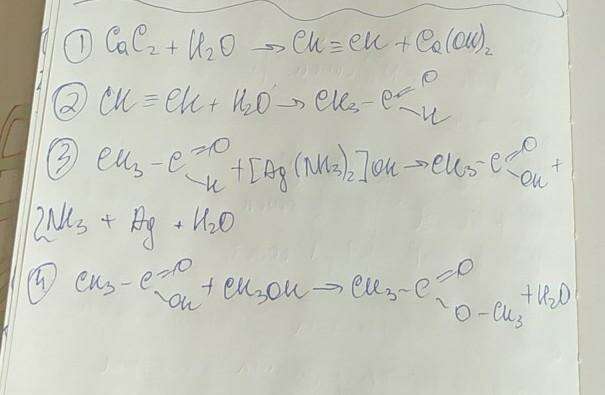 ① CaC₂ + H₂O → CH≡CH + Ca(OH)₂
② CH≡CH + H₂O → CH₃-C=O-H
③ CH₃-C=O-H + [Ag(NH₃)₂]OH → CH₃-C=O-OH +
2NH₃ + Ag + H₂O
④ CH₃-C=O-OH + CH₃OH → CH₃-C=O-O-CH₃ + H₂O